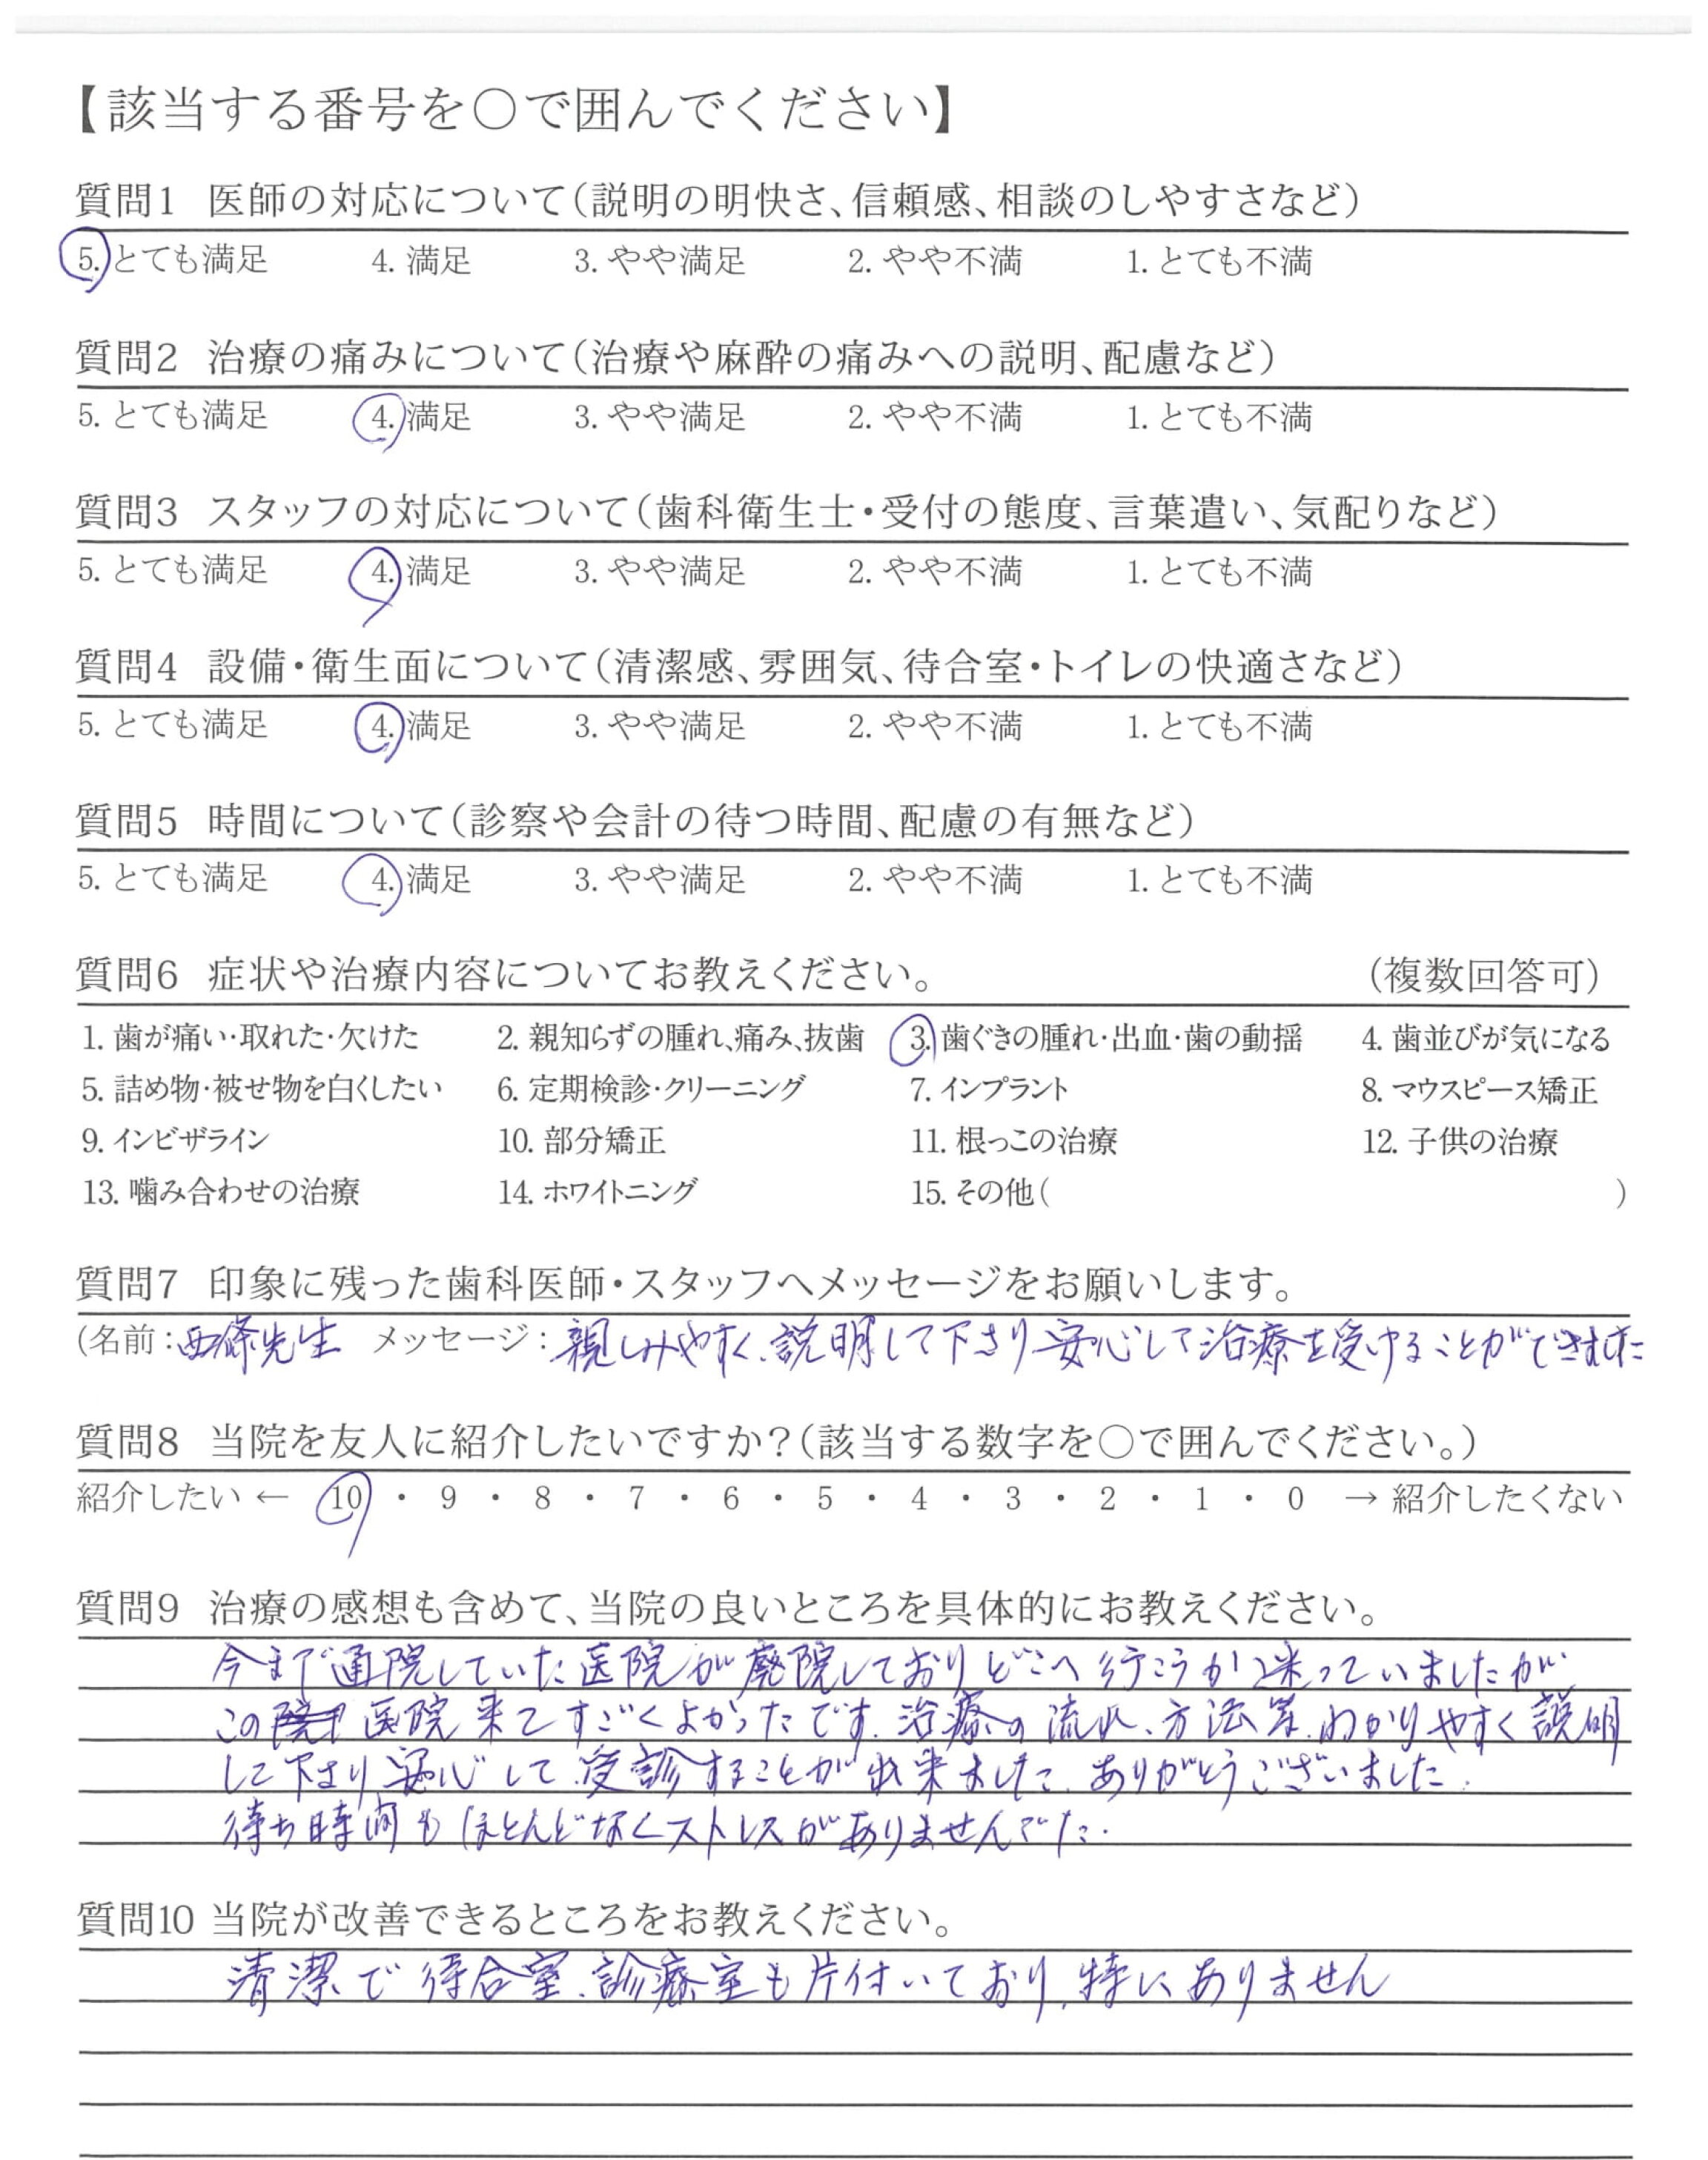 【該当する番号を○で囲んでください】
質問1 医師の対応について(説明の明快さ、信頼感、相談のしやすさなど)
5. とても満足 4. 満足 3. やや満足 2. やや不満 1. とても不満
質問2 治療の痛みについて(治療や麻酔の痛みへの説明、配慮など)
5. とても満足 4. 満足 3. やや満足 2. やや不満 1. とても不満
質問3 スタッフの対応について(歯科衛生士・受付の態度、言葉遣い、気配りなど)
5. とても満足 4. 満足 3. やや満足 2. やや不満 1. とても不満
質問4 設備・衛生面について(清潔感、雰囲気、待合室・トイレの快適さなど)
5. とても満足 4. 満足 3. やや満足 2. やや不満 1. とても不満
質問5 時間について(診察や会計の待つ時間、配慮の有無など)
5. とても満足 4. 満足 3. やや満足 2. やや不満 1. とても不満
質問6 症状や治療内容についてお教えください。 (複数回答可)
1. 歯が痛い・取れた・欠けた 2. 親知らずの腫れ、痛み、抜歯 3. 歯ぐきの腫れ・出血・歯の動揺 4. 歯並びが気になる
5. 詰め物・被せ物を白くしたい 6. 定期検診・クリーニング 7. インプラント 8. マウスピース矯正
9. インビザライン 10. 部分矯正 11. 根っこの治療 12. 子供の治療
13. 噛み合わせの治療 14. ホワイトニング 15. その他( )
質問7 印象に残った歯科医師・スタッフへメッセージをお願いします。
(名前:西條先生 メッセージ:親しみやすく、説明して下さり安心して治療を受けることができました
質問8 当院を友人に紹介したいですか?(該当する数字を○で囲んでください。)
紹介したい ← 10 ・ 9 ・ 8 ・ 7 ・ 6 ・ 5 ・ 4 ・ 3 ・ 2 ・ 1 ・ 0 → 紹介したくない
質問9 治療の感想も含めて、当院の良いところを具体的にお教えください。
今まで通院していた医院が廃院しておりどこへ行こうか迷っていましたが、
この医院来てすごくよかったです。治療の流れ、方法等、わかりやすく説明
して下さり安心して受診することが出来ました。ありがとうございました。
待ち時間もほとんどなくストレスがありませんでした。
質問10 当院が改善できるところをお教えください。
清潔で待合室、診療室も片付いており、特にありません